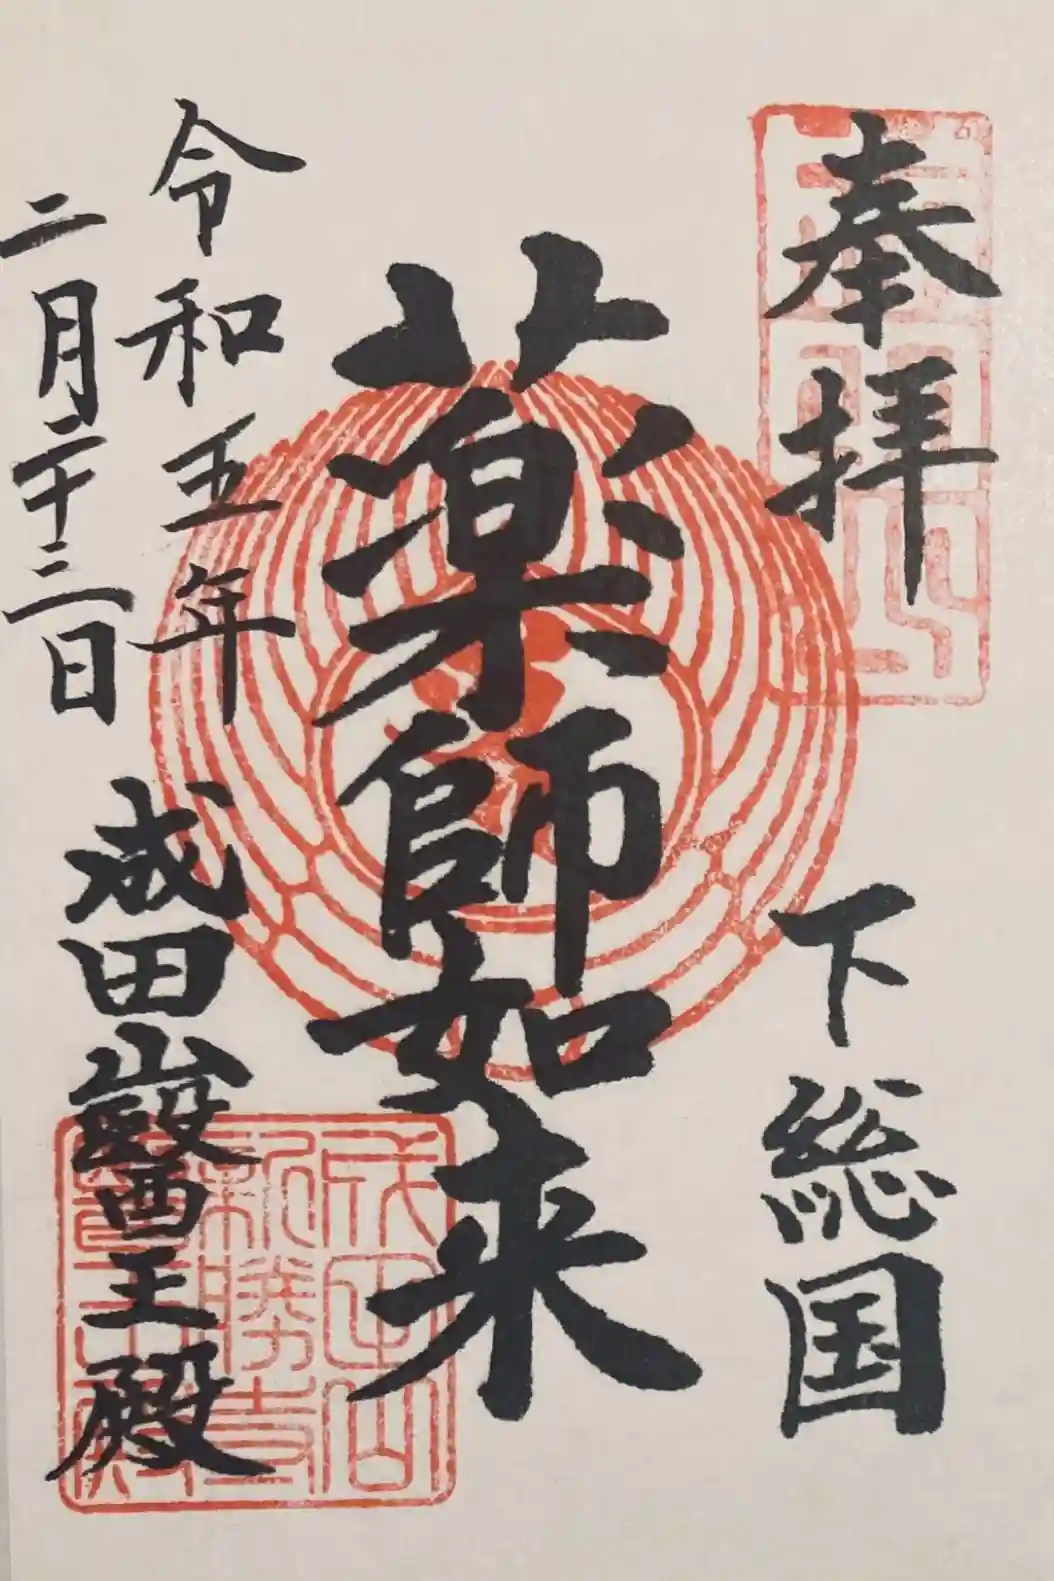 奉拝
下総国
薬師如来
令和五年
二月二十三日
成田山醫王殿
成田山
新勝寺
醫王殿